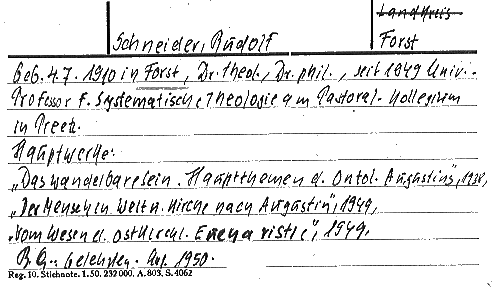 Landkreis
Schneider, Rudolf
Forst
Geb. 4.7. 1910 in Forst, Dr. theol., Dr. phil., seit 1949 Univ.-
Professor f. Systematische Theologie am Pastoral-Kollegium
in Preetz.
Hauptwerke:
„Das wandelbare Sein. Hauptthemen d. Ontol. Augustins", 1938,
„Der Mensch in Welt u. Kirche nach Augustin", 1949,
„Vom Wesen d. ostkirchl. Eucharistie", 1949.
Gelehrten- 1950.
Reg. 10. Stichnote. 1. 50. 232 000. A. 803. S. 4062